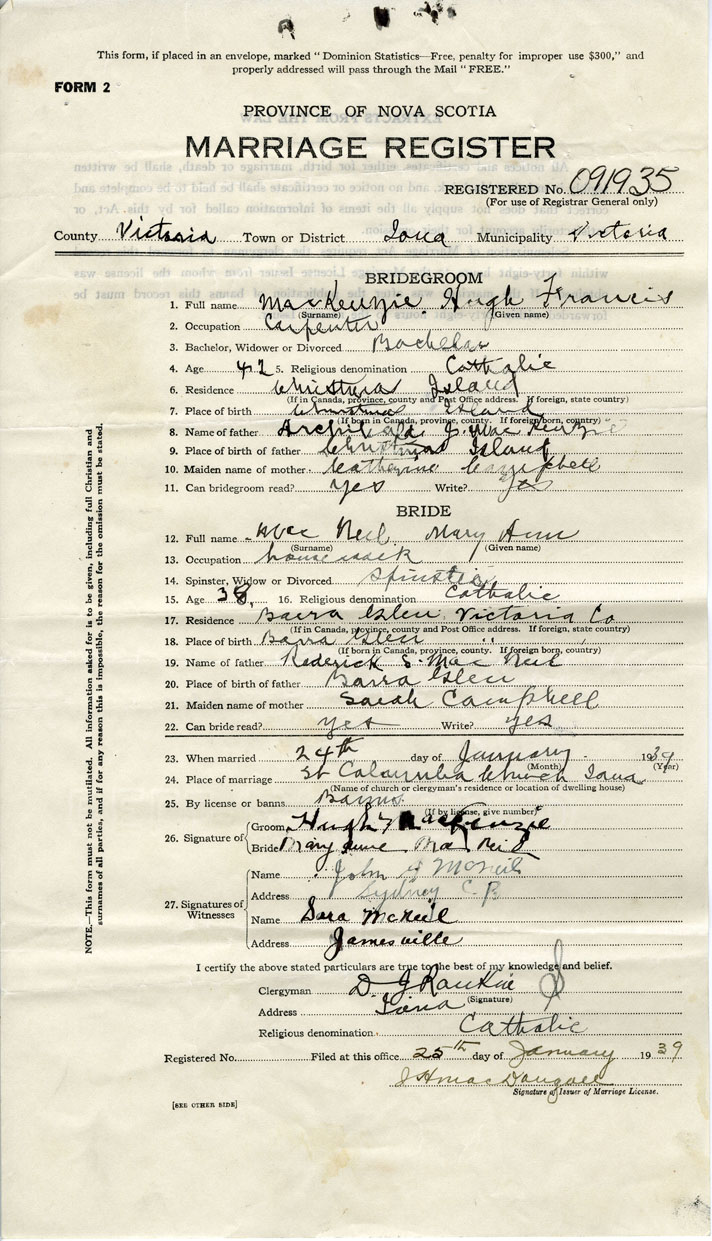 This form, if placed in an envelope, marked "Dominion Statistics—Free, penalty for improper use $300," and
properly addressed will pass through the Mail "FREE."
FORM 2
PROVINCE OF NOVA SCOTIA
MARRIAGE REGISTER
REGISTERED No. 091935
(For use of Registrar General only)
County Victoria Town or District Iona Municipality Victoria
BRIDEGROOM
1. Full name MacKenzie Hugh Francis
(Surname) (Given name)
2. Occupation Carpenter
3. Bachelor, Widower or Divorced Bachelor
4. Age 42 5. Religious denomination Catholic
6. Residence Christmas Island
(If in Canada, province, county and Post Office address. If foreign, state country)
7. Place of birth Christmas Island
(If born in Canada, province, county. If foreign, country)
8. Name of father Archibald J. MacKenzie
9. Place of birth of father Christmas Island
10. Maiden name of mother Catherine Campbell
11. Can bridegroom read? yes Write? yes
BRIDE
12. Full name MacNeil Mary Ann
(Surname) (Given name)
13. Occupation housework
14. Spinster, Widow or Divorced Spinster
15. Age 38 16. Religious denomination Catholic
17. Residence Barra Glen Victoria Co
(If in Canada, province, county and Post Office address. If foreign, state country)
18. Place of birth Barra Glen " "
(If born in Canada, province, county. If foreign, country)
19. Name of father Roderick S. MacNeil
20. Place of birth of father Barra Glen
21. Maiden name of mother Sarah Campbell
22. Can bride read? yes Write? yes
23. When married 24th day of January 1939
(Month) (Year)
24. Place of marriage St Columba Church Iona
(Name of church or clergyman's residence or location of dwelling house)
25. By license or banns Banns
(If by license, give number)
26. Signature of
Groom Hugh F MacKenzie
Bride Mary Anne MacNeil
27. Signatures of Witnesses
Name John McNeil
Address Sydney C. B
Name Sara McNeil
Address Jamesville
I certify the above stated particulars are true to the best of my knowledge and belief.
Clergyman D. J Rankin
(Signature)
Address Iona
Religious denomination Catholic
Registered No. Filed at this office 25th day of January 1939
J H MacDougall
Signature of Issuer of Marriage License.
[SEE OTHER SIDE]
NOTE.—This form must not be mutilated. All information asked for is to be given, including full Christian and
surnames of all parties, and if for any reason this is impossible, the reason for the omission must be stated.